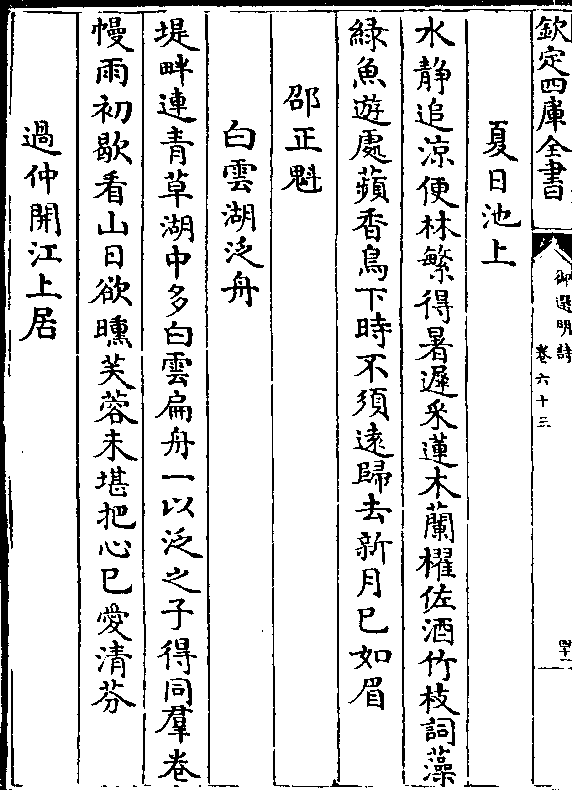 欽定四庫全書
御選明詩
卷六十三
夏日池上
水静追涼便林繁得暑遲采蓮木蘭櫂佐酒竹枝詞藻
緑魚遊處蘋香鳥下時不須遠歸去新月已如眉
邵正魁
白雲湖泛舟
堤畔連青草湖中多白雲扁舟一以泛之子得同羣卷
幔雨初歇看山日欲曛芙蓉未堪把心已愛清芬
過仲開江上居